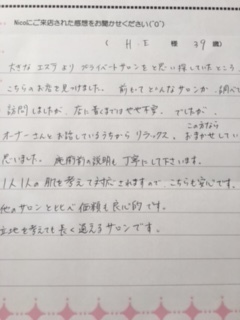 Nicoにご来店された感想をお聞かせください(^0^)
( H.E 様 39歳)
大きなエステよりプライベートサロンをと思い探していたところ
こちらのお店を見つけました。前もってどんなサロンか調べて
訪問しましたが、店に着くまではやや不安、でしたが、
この方なら
オーナーさんとお話しているうちからリラックス。おまかせしていい
思いました。施術前の説明も丁寧にして下さいます。
1人1人の肌を考えて対応されますので、こちらも安心です。
他のサロンと比べ価格も良心的です。
立地を考えても長く通えるサロンです。